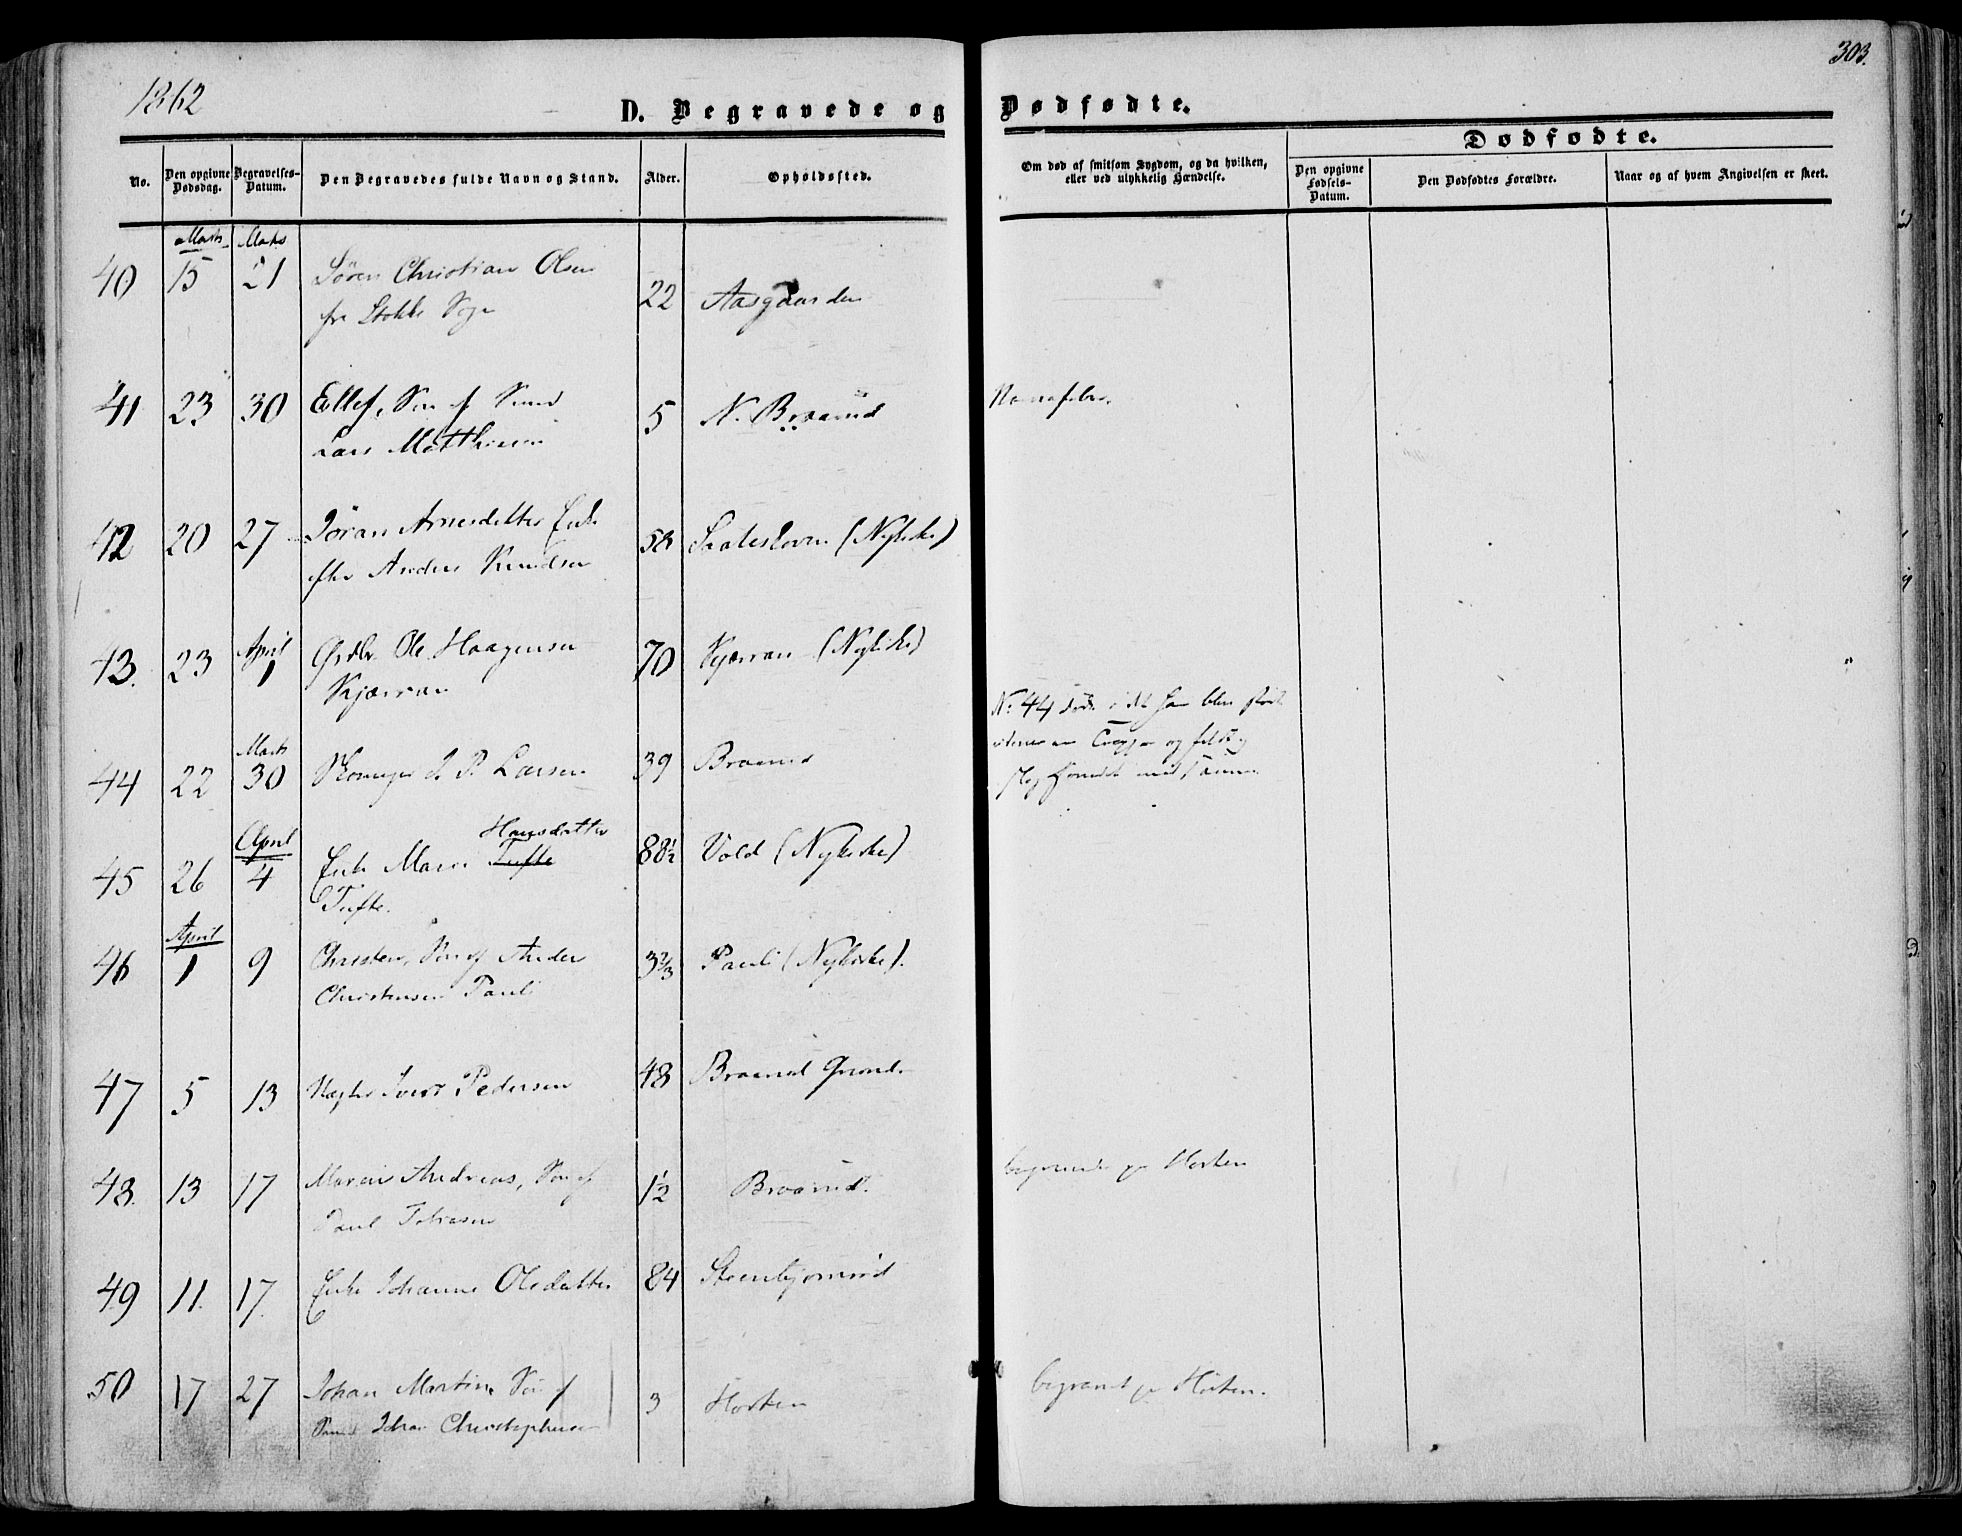 1862
303.
D. Begravede og Dødfødte.
Dødfødte.
No.
Den opgivne Dødsdag.
Begravelses-Datum.
Den Begravedes fulde Navn og Stand.
Alder.
Opholdssted.
Om død af smitsom Sygdom, og da hvilken,
eller ved ulykkelig Hændelse.
Den opgivne Fødsels-Datum.
Den Dødfødtes Forældre.
Naar og af hvem Angivelsen er skeet.
Marts Marts
40 15 21 Sören Christian Olsen
fra Stokke Sogn 22 Aasgaarden
41 23 30 Ellef, Søn af
Lars Matthisen 5 N. Braarud
42 20 27 Jöran Arnesdatter Enke
efter Anders Knudsen 58 (Nykirke)
April
43. 23 1 Grdbr. Ole Haagensen
Kjærran 70 Kjærran (Nykirke)
Marts
44 22 30 P. Larsen 39 Braarud
No 44 døde i det han blev
og
April Hansdatter
45 26 4 Enke Maria Tufte 88½ Vold (Nykirke)
Tufte.
April
46 1 9 Christen, Søn af Anders 3⅔ Pauli (Nykirke).
Christensen Pauli
47 5 13 Iver Pedersen 48 Braarud Grund
48. 13 17 Andreas, Søn af
Paul Tobiasen 1½ Braarud. begravet paa Horten
49 11. 17. Enke Johanne Olsdatter 84 Steenbjørnrød
50 17 27 Johan Martin, Søn af
Johan Christophersen 3 Horten begravet paa Horten.